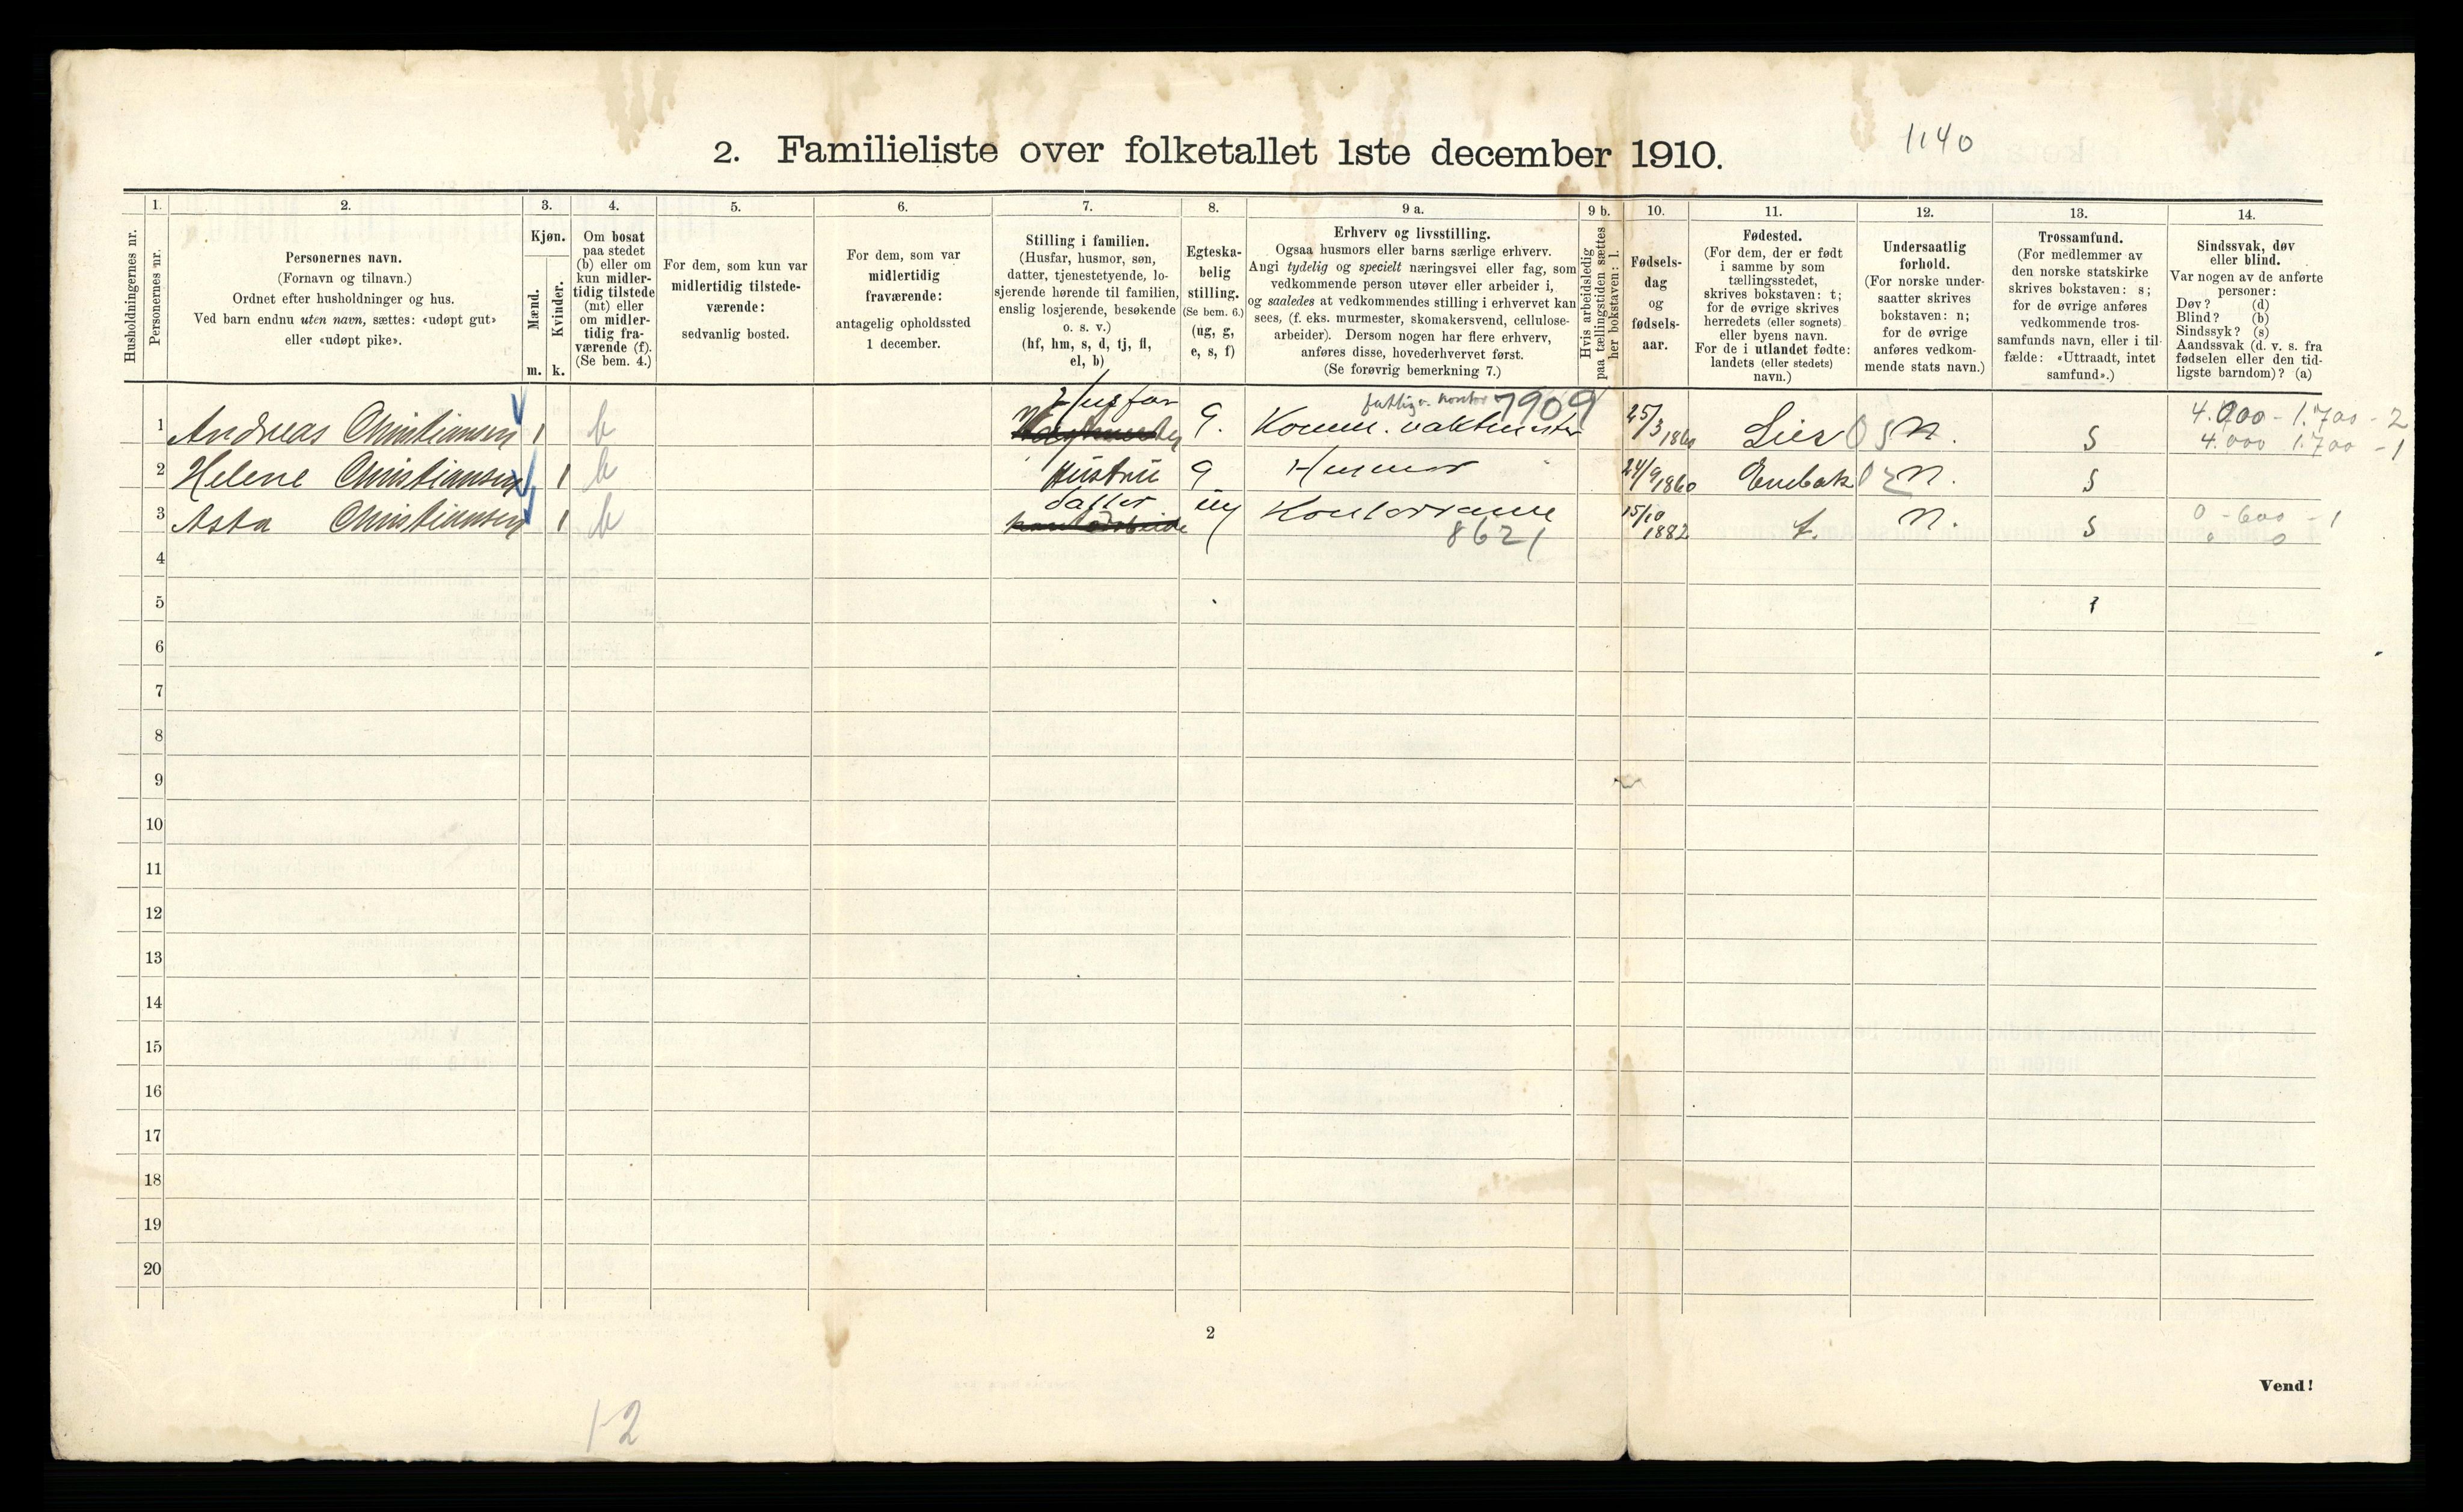 2. Familieliste over folketallet 1ste december 1910.
1140
Husholdningernes nr.
1.
Personernes nr.
2.
Personernes navn.
(Fornavn og tilnavn.)
Ordnet efter husholdninger og hus.
Ved barn endnu uten navn, sættes: «udøpt gut»
eller «udøpt pike».
3.
Kjøn.
Mænd.
Kvinder.
m. k.
4.
Om bosat
paa stedet
(b) eller om
kun midler-
tidig tilstede
(mt) eller
om midler-
tidig fra-
værende (f).
(Se bem. 4.)
5.
For dem, som kun var
midlertidig tilstede-
værende:
sedvanlig bosted.
6.
For dem, som var
midlertidig
fraværende:
antagelig opholdssted
1 december.
7.
Stilling i familien.
(Husfar, husmor, søn,
datter, tjenestetyende, lo-
sjerende hørende til familien,
enslig losjerende, besøkende
o. s. v.)
(hf, hm, s, d, tj, fl,
el, b)
8.
Egteska-
belig
stilling.
(Se bem. 6.)
(ug, g,
e, s, f)
9 a.
Erhverv og livsstilling.
Ogsaa husmors eller barns særlige erhverv.
Angi tydelig og specielt næringsvei eller fag, som
vedkommende person utøver eller arbeider i,
og saaledes at vedkommendes stilling i erhvervet kan
sees, (f. eks. murmester, skomakersvend, cellulose-
arbeider). Dersom nogen har flere erhverv,
anføres disse, hovederhvervet først.
(Se forøvrig bemerkning 7.)
9 b.
Hvis arbeidsledig
paa tællingstiden sættes
her bokstaven: l.
10.
Fødsels-
dag
og
fødsels-
aar.
11.
Fødested.
(For dem, der er født
i samme by som
tællingsstedet,
skrives bokstaven: t;
for de øvrige skrives
herredets (eller sognets)
eller byens navn.
For de i utlandet fødte:
landets (eller stedets)
navn.)
12.
Undersaatlig
forhold.
(For norske under-
saatter skrives
bokstaven: n;
for de øvrige
anføres vedkom-
mende stats navn.)
13.
Trossamfund.
(For medlemmer av
den norske statskirke
skrives bokstaven: s;
for de øvrige anføres
vedkommende tros-
samfunds navn, eller i til-
fælde: «Uttraadt, intet
samfund».)
14.
Sindssvak, døv
eller blind.
Var nogen av de anførte
personer:
Døv? (d)
Blind? (b)
Sindssyk? (s)
Aandssvak (d. v. s. fra
fødselen eller den tid-
ligste barndom)? (a)
1 Andreas Christiansen 1 b Husfar g. Komm. vaktmester 1909 25/3 1860 Lier n. s 4.000 - 1.700 - 2
4.000 1.700 - 1
2 Helene Christiansen 1 b Hustru g Husmor 24/9 1860 Enebak n. s
3 Asta Christiansen 1 b datter ug Kontordame 8621 15/10 1882 t. n. s 0 - 600 - 1
0 0
4
5
6
7
8
9
10
11
12
13
14
15
16
17
18
19
20
2
Vend!
1-2